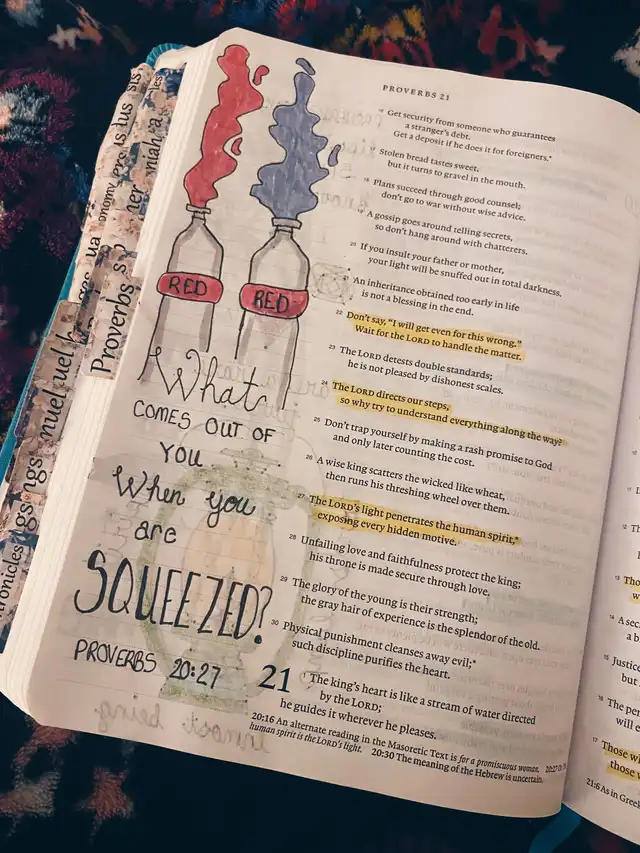 PROVERBS 21
16 Get security from someone who guarantees
a stranger's debt.
Get a deposit if he does it for foreigners.*
17 Stolen bread tastes sweet,
but it turns to gravel in the mouth.
18 Plans succeed through good counsel;
don't go to war without wise advice.
19 A gossip goes around telling secrets,
so don't hang around with chatterers.
20 If you insult your father or mother,
your light will be snuffed out in total darkness.
21 An inheritance obtained too early in life
is not a blessing in the end.
22 Don't say, "I will get even for this wrong."
Wait for the LORD to handle the matter.
23 The LORD detests double standards;
he is not pleased by dishonest scales.
24 The LORD directs our steps,
so why try to understand everything along the way?
25 Don't trap yourself by making a rash promise to God
and only later counting the cost.
26 A wise king scatters the wicked like wheat,
then runs his threshing wheel over them.
27 The LORD's light penetrates the human spirit,*
exposing every hidden motive.
28 Unfailing love and faithfulness protect the king;
his throne is made secure through love.
29 The glory of the young is their strength;
the gray hair of experience is the splendor of the old.
30 Physical punishment cleanses away evil;*
such discipline purifies the heart.
21 1 The king's heart is like a stream of water directed
by the LORD;
he guides it wherever he pleases.
20:16 An alternate reading in the Masoretic Text is for a promiscuous woman. 20:27
human spirit is the LORD's light. 20:30 The meaning of the Hebrew is uncertain.
RED
RED
What
COMES OUT OF
YOU
When you
are
SQUEEZED?
PROVERBS 20:27
Proverbs
21:6 As in Greek